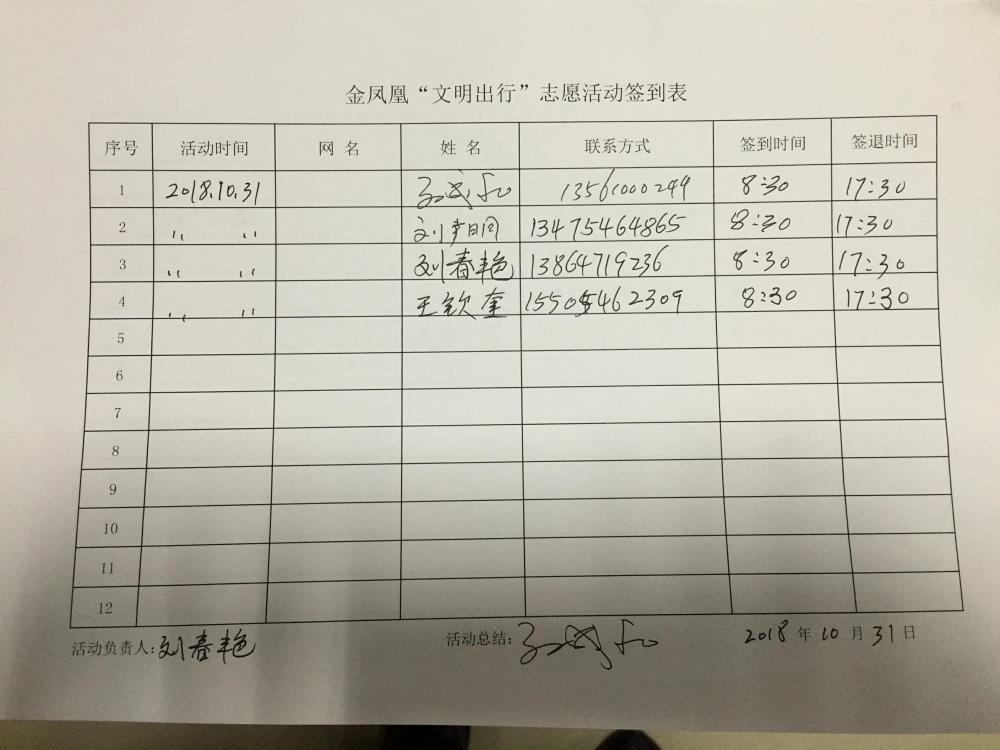 金凤凰“文明出行”志愿活动签到表
序号 活动时间 网 名 姓 名 联系方式 签到时间 签退时间
1 2018.10.31 13561000249 8:30 17:30
2 〃 〃 刘 13475464865 8:30 17:30
3 〃 〃 刘春艳 13864719236 8:30 17:30
4 〃 〃 王钦奎 15505462309 8:30 17:30
5
6
7
8
9
10
11
12
活动负责人:刘春艳 活动总结: 2018 年 10 月 31 日